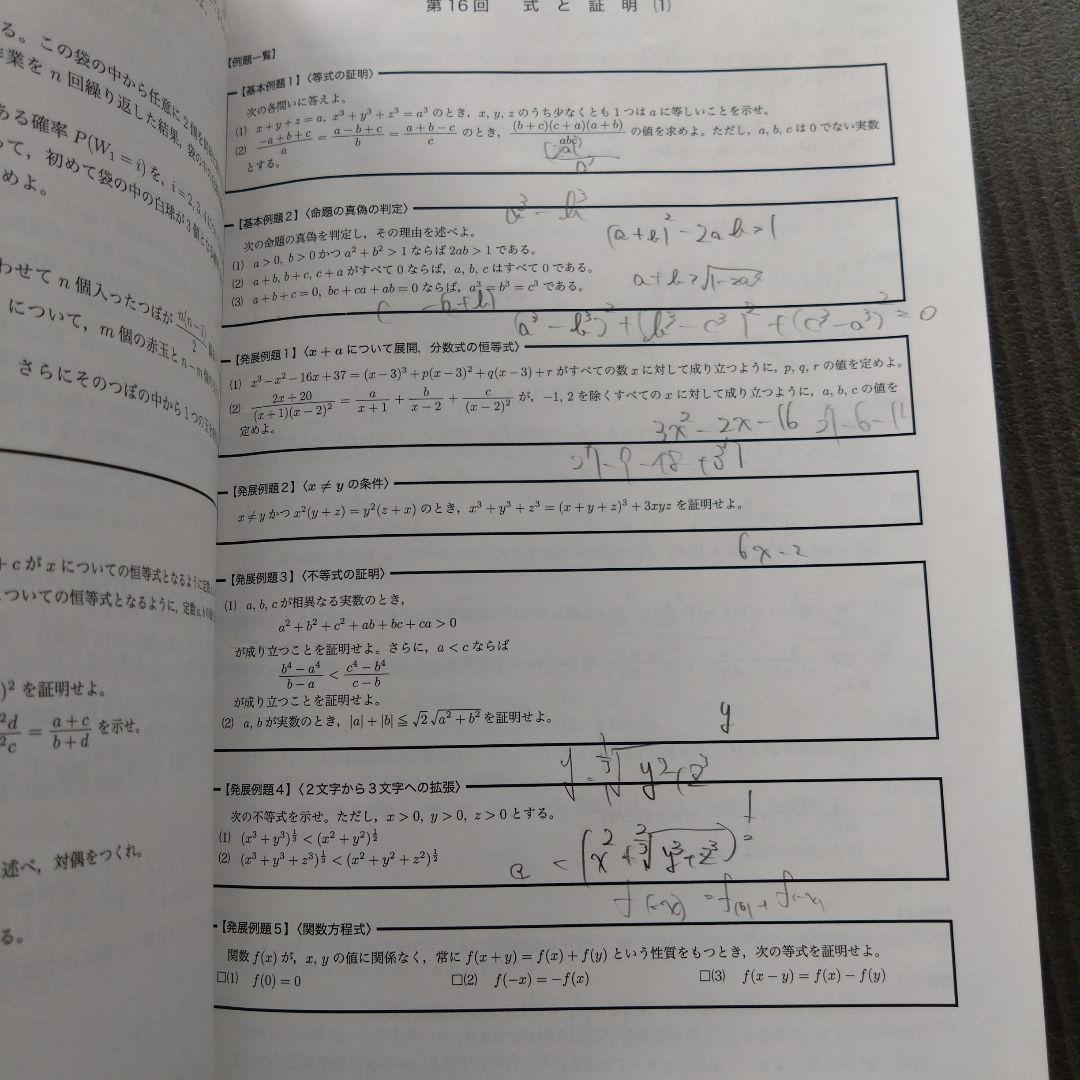 る。この袋の中から任意に2個を
作業を n 回繰り返した結果，袋の中の
ある確率 P(W₁ = i) を，i = 2, 3, 4
って，初めて袋の中の白球が3個とも
めよ。
わせて n 個入ったつぼが n(n−1)/2
について，m 個の赤玉と n−m 個の
さらにそのつぼの中から1つの玉を
+ c が x についての恒等式となるように定数
ついての恒等式となるように，定数 a, b の
)² を証明せよ。
²d/²c = (a+c)/(b+d) を示せ。
述べ，対偶をつくれ。
る。
第16回 式と証明 (1)
【例題一覧】
【基本例題1】〈等式の証明〉
次の各問いに答えよ。
(1) x+y+z=a, x³+y³+z³=a³ のとき，x, y, z のうち少なくとも1つは a に等しいことを示せ。
(2) (−a+b+c)/a = (a−b+c)/b = (a+b−c)/c のとき，(b+c)(c+a)(a+b)/abc の値を求めよ。ただし，a, b, c は 0 でない実数
とする。
a³ − b³
【基本例題2】〈命題の真偽の判定〉
次の命題の真偽を判定し，その理由を述べよ。
(a+b)² − 2ab > 1
(1) a>0, b>0 かつ a²+b²>1 ならば 2ab>1 である。
(2) a+b, b+c, c+a がすべて 0 ならば，a, b, c はすべて 0 である。
(3) a+b+c=0, bc+ca+ab=0 ならば，a³=b³=c³ である。
(a³−b³)² + (b³−c³)² + (c³−a³)² = 0
【発展例題1】〈x+a について展開，分数式の恒等式〉
(1) x³−x²−16x+37=(x−3)³+p(x−3)²+q(x−3)+r がすべての数 x に対して成り立つように，p, q, r の値を定めよ。
(2) (2x+20)/((x+1)(x−2)²) = a/(x+1) + b/(x−2) + c/(x−2)² が，−1, 2 を除くすべての x に対して成り立つように，a, b, c の値を
定めよ。
3x² − 2x − 16
27−9−48+37
【発展例題2】〈x≠y の条件〉
x≠y かつ x²(y+z)=y²(z+x) のとき，x³+y³+z³=(x+y+z)³+3xyz を証明せよ。
6x−2
【発展例題3】〈不等式の証明〉
(1) a, b, c が相異なる実数のとき，
a²+b²+c²+ab+bc+ca>0
が成り立つことを証明せよ。さらに，a<c ならば
(b⁴−a⁴)/(b−a) < (c⁴−b⁴)/(c−b)
が成り立つことを証明せよ。
(2) a, b が実数のとき，|a|+|b| ≦ √2 √(a²+b²) を証明せよ。
y
【発展例題4】〈2文字から3文字への拡張〉
次の不等式を示せ。ただし，x>0, y>0, z>0 とする。
(1) (x³+y³)^(1/3) < (x²+y²)^(1/2)
(2) (x³+y³+z³)^(1/3) < (x²+y²+z²)^(1/2)
【発展例題5】〈関数方程式〉
関数 f(x) が，x, y の値に関係なく，常に f(x+y)=f(x)+f(y) という性質をもつとき，次の等式を証明せよ。
□(1) f(0)=0 □(2) f(−x)=−f(x) □(3) f(x−y)=f(x)−f(y)